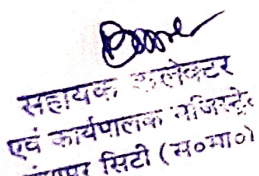 सहायक कलेक्टर
एवं कार्यपालक मजिस्ट्रेट
सिटी (स०मा०)